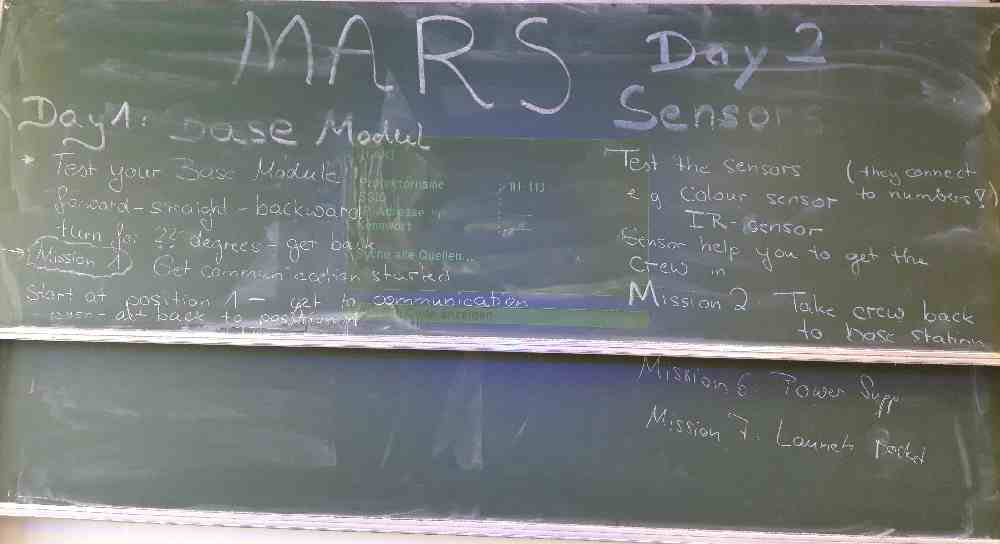 MARS
Day 1: Base Modul
* Test your Base Module!
forward-straight-backward
turn for ?? degrees-get back
→ Mission 1 Get communication started
Start at position 1 - get to communication
back to position
Day 2
Sensor
Test the sensors (they connect
e g Colour sensor to numbers!)
IR-sensor
Sensor help you to get the
crew in
Mission 2. Take crew back
to base station
Mission 6. Power Supp
Mission 7. Launch
Projektorname
SSID
Kennwort
Suche alle Quellen...
anzeigen